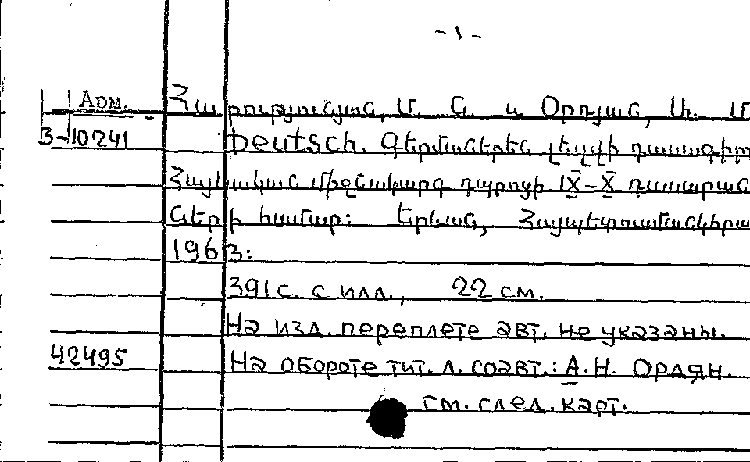 - 1 -
Арм. Հարությունյան, Մ. Ն. և Օրդյան, Ա. Մ
3-10241 Deutsch. Գերմաներեն լեզվի դասագիրք
Հայկական միջնակարգ դպրոցի IX-X դասարան
ների համար: Երևան, Հայպետուսմանկհրա
1963:
391 с. с илл., 22 см.
На изд. переплете авт. не указаны.
42495 На обороте тит. л. соавт.: А. Н. Ордян.
см. след. карт.